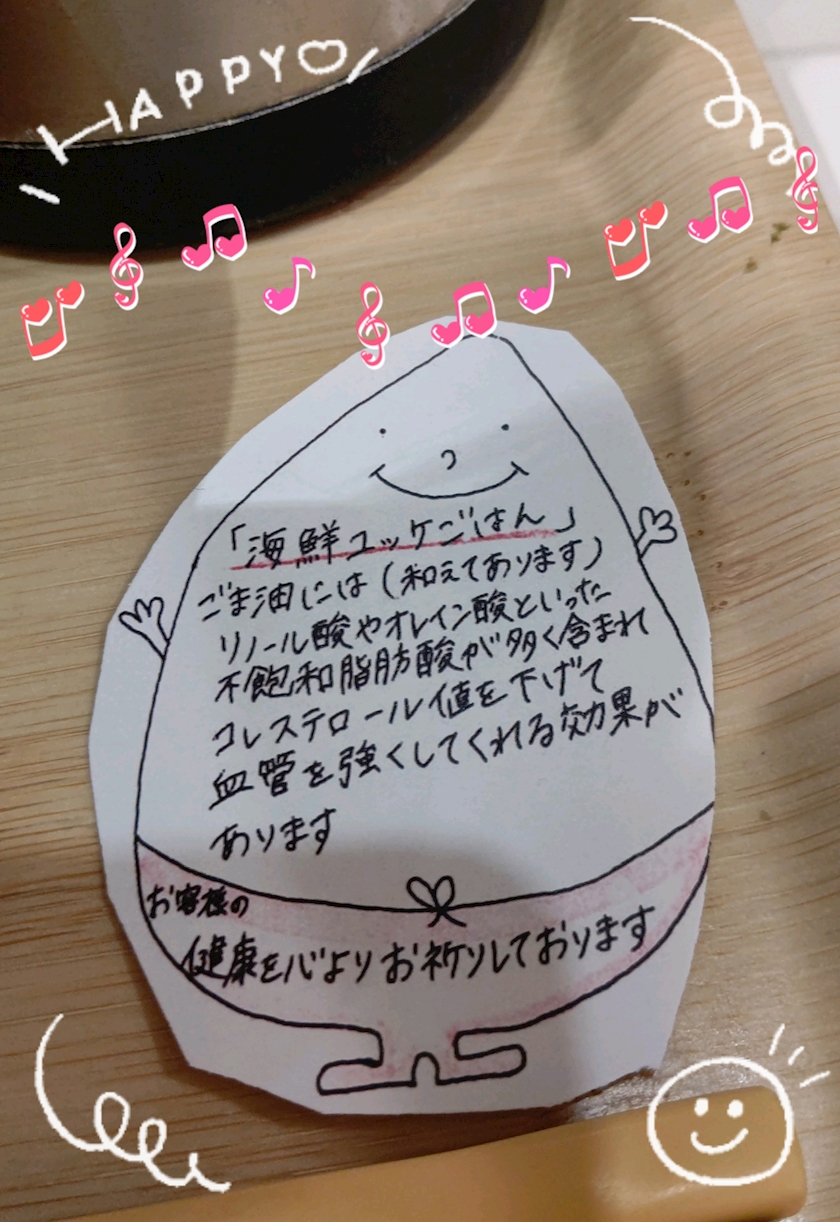 HAPPY♡
「海鮮ユッケごはん」
ごま油には(和えてあります)
リノール酸やオレイン酸といった
不飽和脂肪酸が多く含まれ
コレステロール値を下げて
血管を強くしてくれる効果が
あります
お客様の
健康を心よりお祈りしております